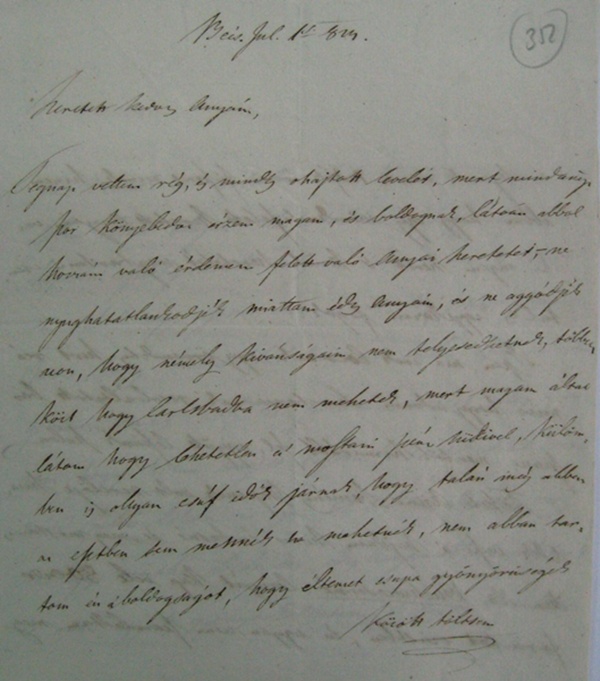 Bécs. Jul. 1ᵗ 8
352
Szeretett kedves Anyám,
Tegnap vettem rég, és mindég ohajtott levelét, mert
kor könyebben érzem magam, és boldognak, látván abbol
hozzám való érdemem felett való Anyai szeretetét, – ne
nyughatatlankodjék miattam édes Anyám, és ne aggódjék
azon, hogy némely kivánságaim nem telyesedhetnek, többek
közt hogy Carlsbadba nem mehetek, mert magam által
látom hogy lehetetlen a mostani pénz szükivel, külöm,
ben is ollyan csúf idők járnak, hogy talán még abban
az esetben sem mennék ha mehetnék, nem abban tar,
tom én a boldogságot, hogy életemet csupa gyönyörüségek
között töltsem